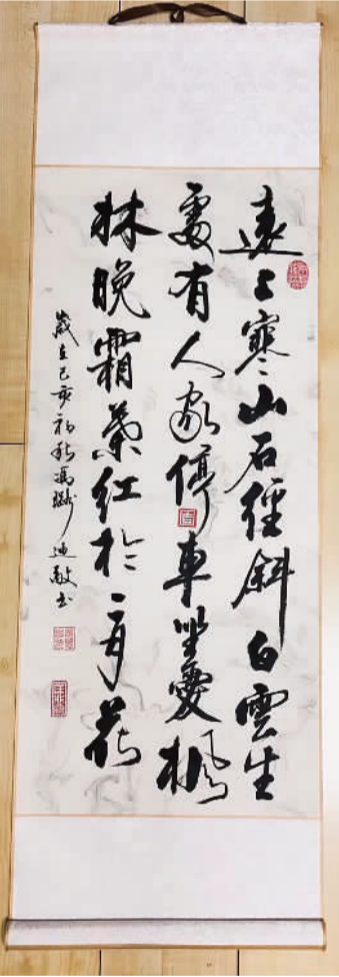 遠〻寒山石徑斜白雲生
處有人家停車坐愛楓
林晚霜葉紅於二月花
歲在己亥初秋馮迪敏書